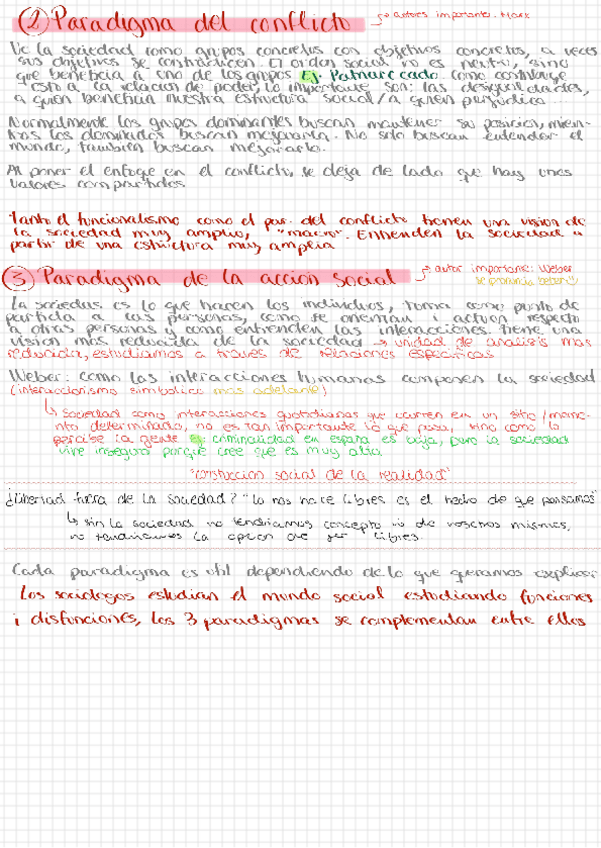 ② Paradigma del conflicto → autores importante: Marx
Ve la sociedad como grupos concretos con objetivos concretos, a veces
sus objetivos se contradicen. El orden social no es neutro, sino
que beneficia a uno de los grupos Ej: Patriarcado. Como contribuye
esto a la relacion de poder, lo importante son: las desigualdades,
a quien beneficia nuestra estructura social / a quien perjudica...
Normalmente los grupos dominantes buscan mantener su posicion, mien-
tras los dominados buscan mejorarla. No solo buscan entender el
mundo, tambien buscan mejorarlo.
Al poner el enfoque en el conflicto, se deja de lado que hay unos
valores compartidos
Tanto el funcionalismo como el par. del conflicto tienen una vision de
la sociedad muy amplia, "macro". Entienden la sociedad a
partir de una estructura muy amplia
③ Paradigma de la accion social → autor importante: Weber
se pronuncia beber
La sociedas es lo que hacen los individuos, toma como punto de
partida a las personas, como se orientan i actuan respecto
a otras personas y como entienden las interacciones. tiene una
vision mas reducida de la sociedad → unidad de analisis mas
reducida, estudiamos a traves de relaciones especificas
Weber: como las interacciones humanas componen la sociedad
(interaccionismo simbolico mas adelante)
↳ Sociedad como interacciones quotidianas que ocurren en un sitio/mome-
nto determinado, no es tan importante lo que pasa, sino como lo
percibe la gente ej: criminalidad en españa es baja, pero la sociedad
vive insegura porque cree que es muy alta
"construccion social de la realidad"
¿Libertad fuera de la sociedad? "Lo nos hace libres es el hecho de que pensamos"
↳ sin la sociedad no tendriamos concepto ni de nosotros mismos,
no tendriamos la opcion de ser libres.
Cada paradigma es util dependiendo de lo que queramos explicar
Los sociologos estudian el mundo social estudiando funciones
i disfunciones, los 3 paradigmas se complementan entre ellos